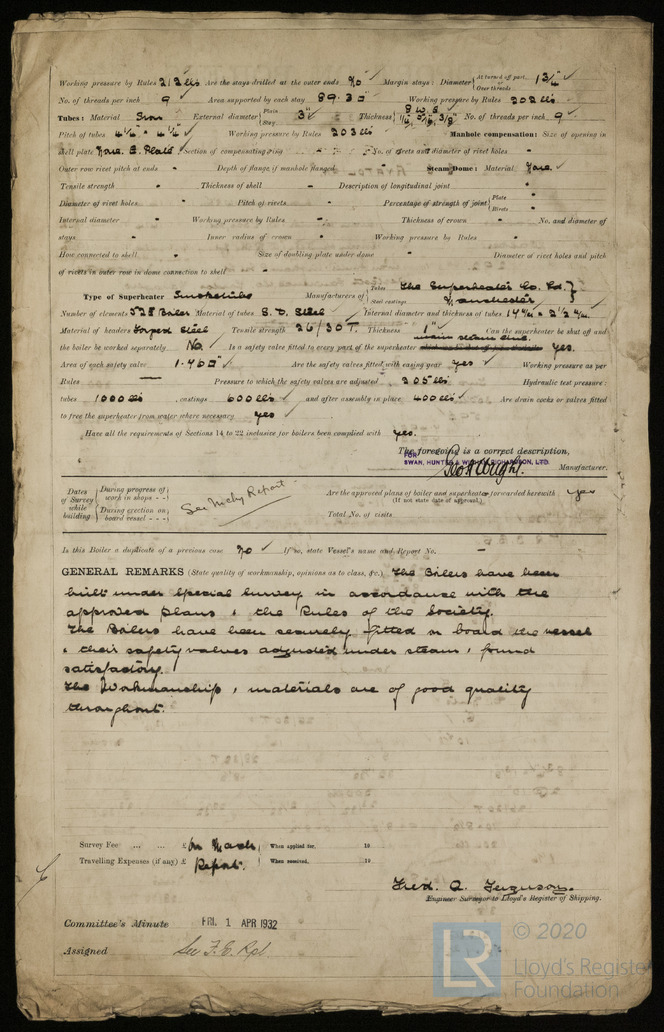 Working pressure by Rules 212 lbs Are the stays drilled at the outer ends No Margin stays: Diameter { At turned off part, 1 3/4" Over threads
No. of threads per inch 9 Area supported by each stay 89.30" Working pressure by Rules 202 lbs
Tubes: Material Iron External diameter { Plain Stay 3" Thickness { 8 W.G. No. of threads per inch 9
Pitch of tubes 4 1/4" × 4 1/4" Working pressure by Rules 203 lbs Manhole compensation: Size of opening in
shell plate None. E. Plate Section of compensating ring No. of rivets and diameter of rivet holes
Outer row rivet pitch at ends Depth of flange if manhole flanged Steam Dome: Material None
Tensile strength Thickness of shell Description of longitudinal joint
Diameter of rivet holes Pitch of rivets Percentage of strength of joint { Plate Rivets
Internal diameter Working pressure by Rules Thickness of crown No. and diameter of
stays Inner radius of crown Working pressure by Rules
How connected to shell Size of doubling plate under dome Diameter of rivet holes and pitch
of rivets in outer row in dome connection to shell
Type of Superheater Smoketube Manufacturers of { Tubes Steel castings The Superheater Co. Ld. Manchester
Number of elements Material of tubes S. D. Steel Internal diameter and thickness of tubes
Material of headers Forged Steel Tensile strength 26/30 T. Thickness 1" Can the superheater be shut off and
main steam line.
the boiler be worked separately No Is a safety valve fitted to every part of the superheater yes.
Area of each safety valve Are the safety valves fitted with easing gear yes Working pressure as per
Rules — Pressure to which the safety valves are adjusted 205 lbs Hydraulic test pressure:
tubes 1000 lbs castings 600 lbs and after assembly in place 400 lbs Are drain cocks or valves fitted
to free the superheater from water where necessary yes
Have all the requirements of Sections 14 to 22 inclusive for boilers been complied with yes.
The foregoing is a correct description,
FOR
SWAN, HUNTER & WIGHAM RICHARDSON, LTD. Manufacturer.
Dates of Survey while building { During progress of work in shops - - During erection on board vessel - - See Mchy Report Are the approved plans of boiler and superheater forwarded herewith yes
(If not state date of approval.)
Total No. of visits
Is this Boiler a duplicate of a previous case No If so, state Vessel's name and Report No. —
GENERAL REMARKS (State quality of workmanship, opinions as to class, &c.) The Boilers have been
built under Special Survey in accordance with the
approved plans & the Rules of the Society.
The Boilers have been securely fitted on board the vessel
& their safety valves adjusted under steam & found
satisfactory.
The Workmanship & materials are of good quality
throughout.
Survey Fee ... ... £ on Mach. When applied for, 19
Travelling Expenses (if any) £ Report. When received, 19
Fred. A. Ferguson.
Engineer Surveyor to Lloyd's Register of Shipping.
Committee's Minute FRI. 1 APR 1932
Assigned See F.E. Rpt.
LR © 2020
Lloyd's Register
Foundation